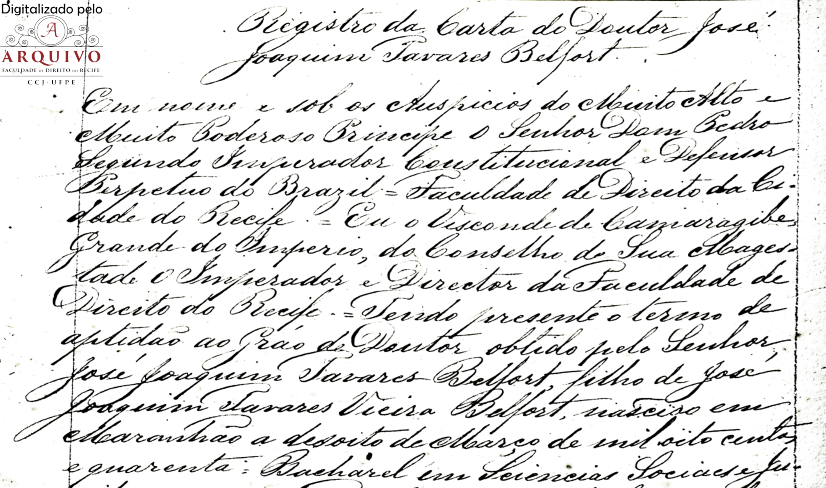 Digitalizado pelo
A
ARQUIVO
FACULDADE DE DIREITO DO RECIFE
CCJ-UFPE
Registro da Carta do Doutor José
Joaquim Tavares Belfort.
Em nome e sob os Auspicios do Muito Alto e
Muito Poderoso Principe o Senhor Dom Pedro
Segundo Imperador Constitucional e Defensor
Perpetuo do Brazil = Faculdade de Direito da Ci-
dade do Recife = Eu o Visconde de Camaragibe,
Grande do Imperio, do Conselho de Sua Mages-
tade o Imperador e Director da Faculdade de
Direito do Recife = Tendo presente o termo de
aptidão ao gráo de Doutor obtido pelo Senhor
José Joaquim Tavares Belfort, filho de José
Joaquim Tavares Vieira Belfort, nascido em
Maranhão a desoito de Março de mil oito centos
e quarenta = Bacharel em Sciencias Sociaes e Ju-